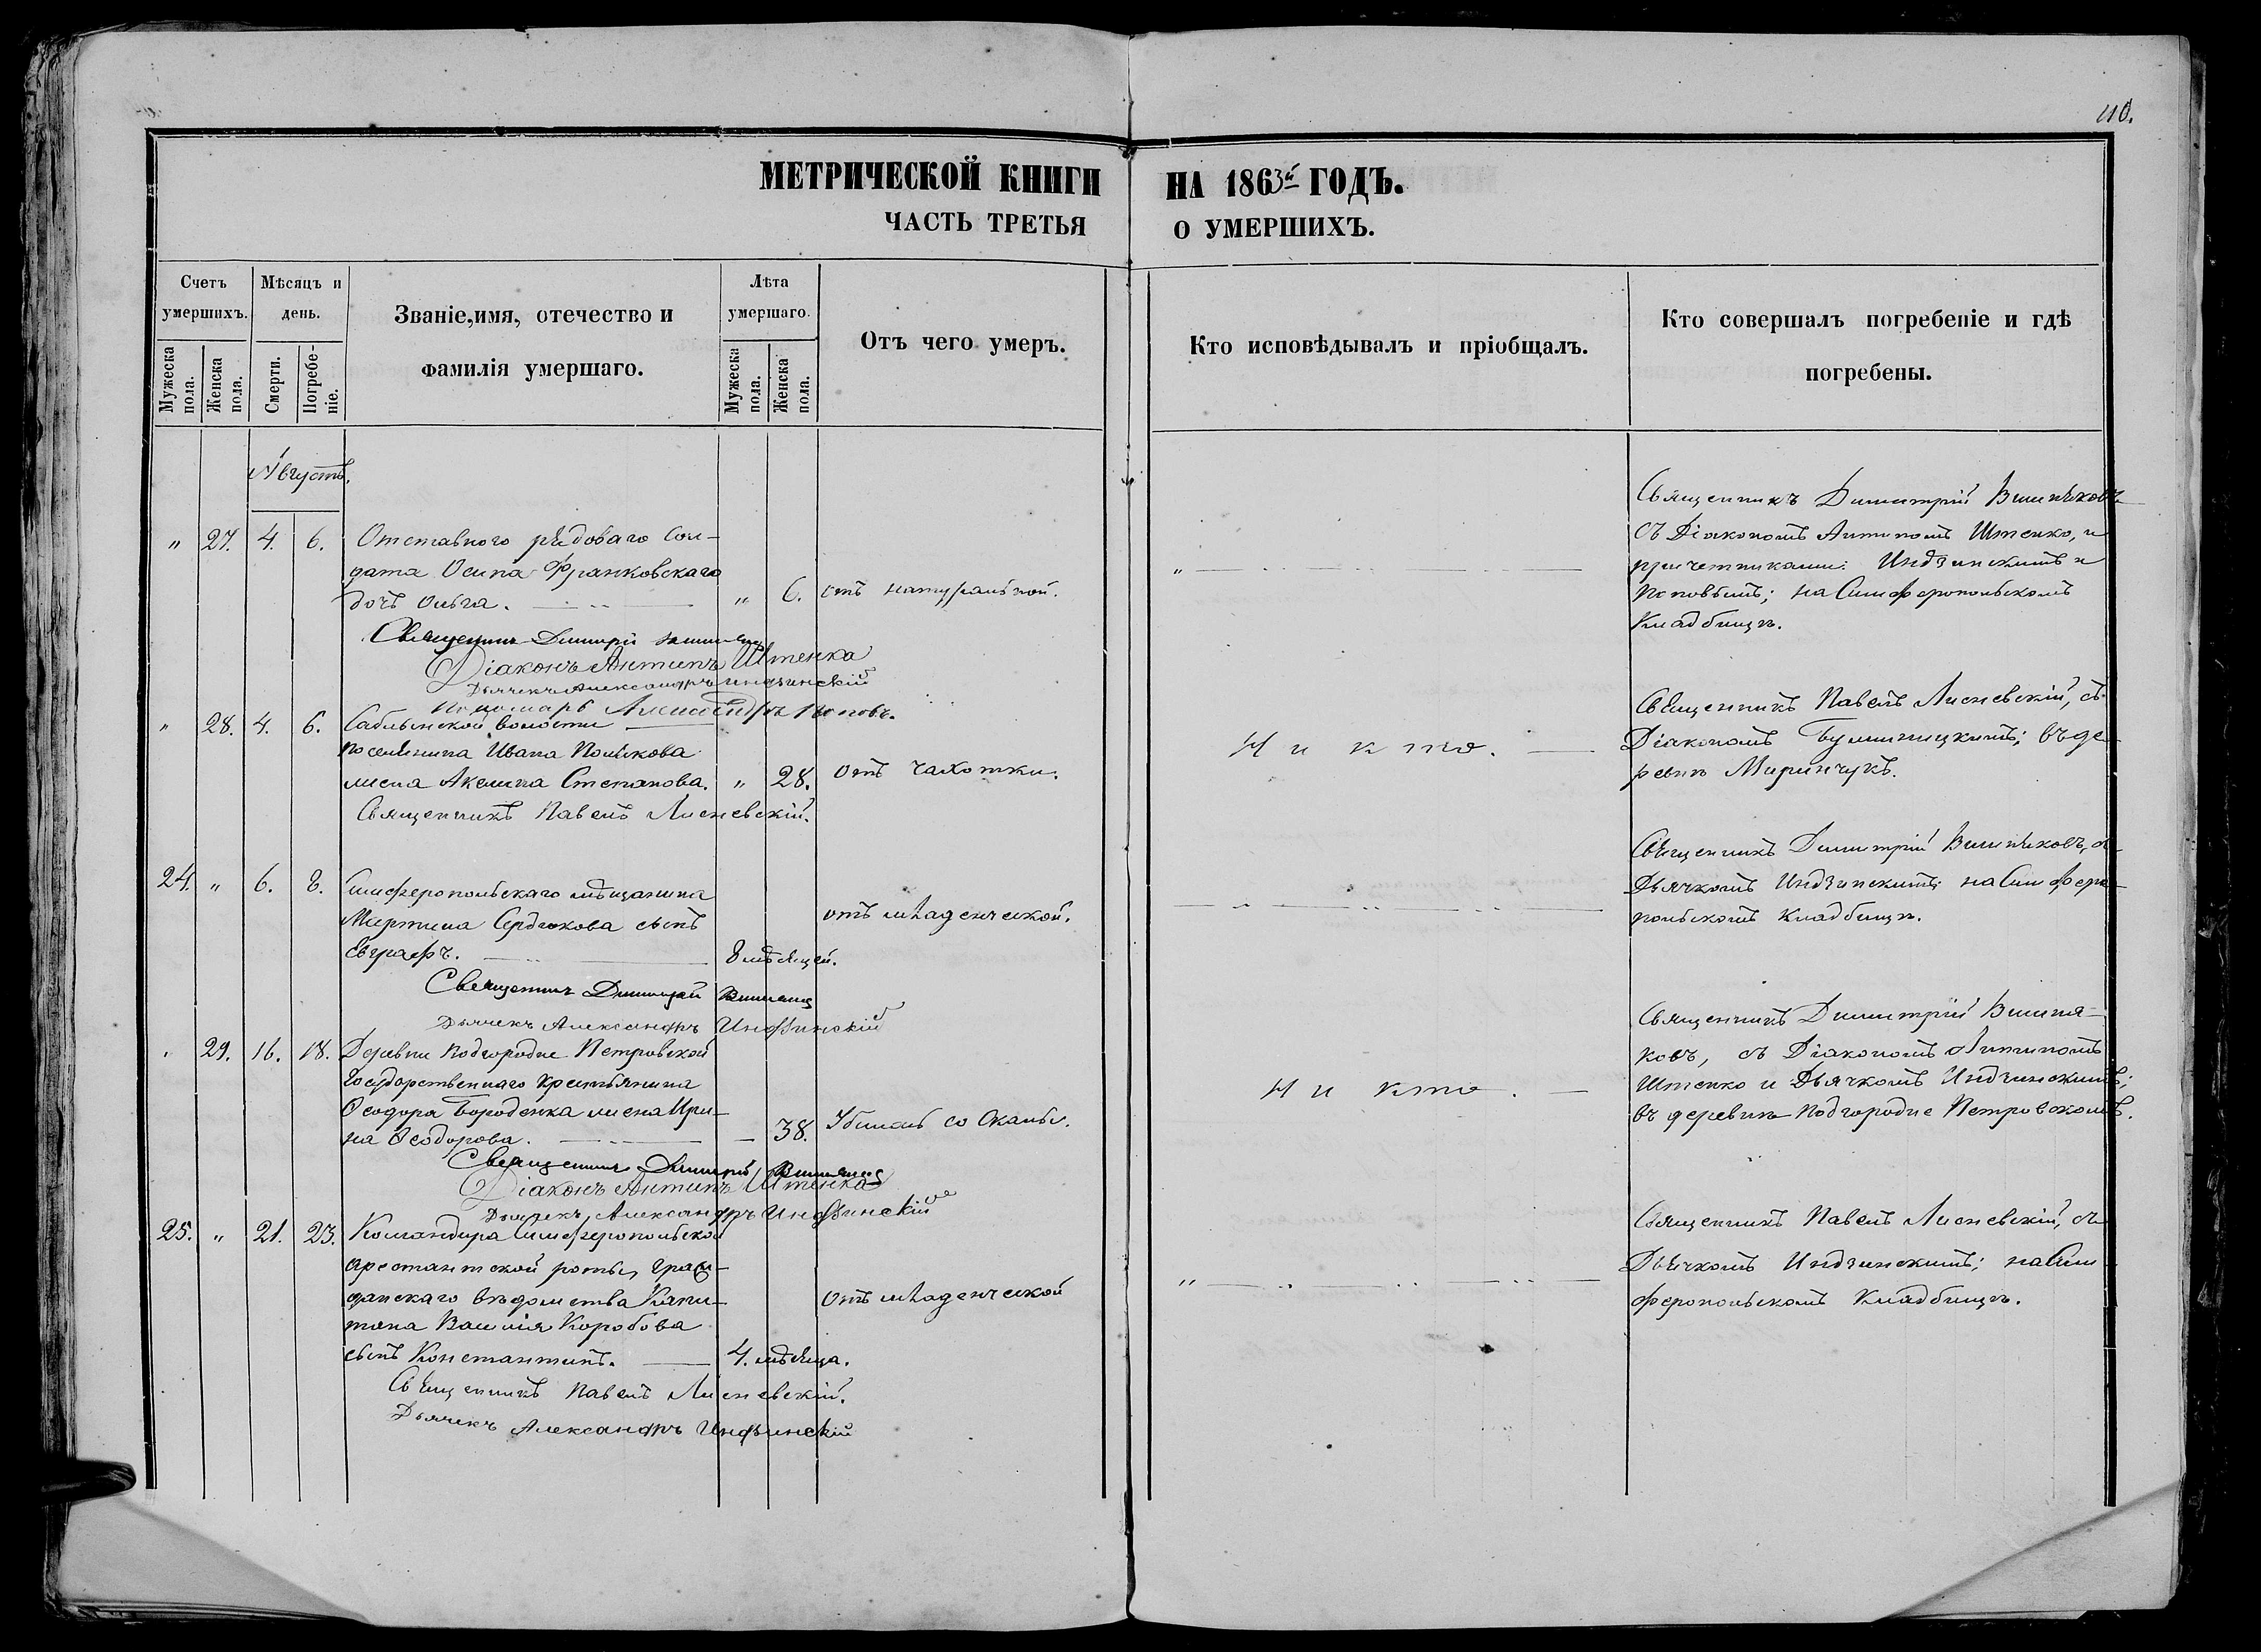 110.
МЕТРИЧЕСКОЙ КНИГИ НА 1863й ГОДЪ.
ЧАСТЬ ТРЕТЬЯ О УМЕРШИХЪ.
Счетъ умершихъ.
Мужеска пола.
Женска пола.
Мѣсяцъ и день.
Смерти.
Погребе-ніе.
Званіе,имя, отечество и
фамилія умершаго.
Лѣта умершаго.
Мужеска пола.
Женска пола.
Отъ чего умеръ.
Кто исповѣдывалъ и пріобщалъ.
Кто совершалъ погребеніе и гдѣ
погребены.
Августъ.
" 27. 4. 6. Отставного рядоваго Сол-
дата Осипа Франковскаго
дочь Ольга. " 6. отъ натуральной.
Священникъ Димитрій
Діаконъ Антипъ Штенка
Дьячекъ Александръ Индзинскій
Пономарь Александръ Поповъ.
"
Священникъ Димитрій Вишняковъ
съ Діакономъ Антипомъ Штенко, и
причетниками: Индзинскимъ и
Поповымъ; на Симферопольскомъ
Кладбищѣ.
" 28. 4. 6. Саблынской волости
поселянина Ивана Полякова
жена Акелина Степанова. " 28. Отъ чахотки.
Священникъ Павелъ Лисневскій.
Никто.
Священникъ Павелъ Лисневскій, съ
Діакономъ въ де-
ревнѣ
24. " 6. 8. Симферопольскаго мѣщанина
Мартина Сердюкова сынъ
Евграфъ. 8 мѣсяцей. отъ младенческой.
Священникъ Димитрій
Дьячекъ Александръ Индзинскій
Священникъ Димитрій Вишняковъ, съ
Дьячкомъ Индзинскимъ; на Симферо-
польскомъ кладбищѣ.
29. 16. 18. Деревни Подгородне Петровской
Государственнаго крестьянина
Ѳеодора Бороденка жена Ири-
на Ѳеодорова. 38. Убилась со Скалы.
Священникъ Димитрій
Діаконъ Антипъ Штенка
Дьячекъ Александръ Индзинскій
Никто.
Священникъ Димитрій Вишня-
ковъ, съ Діакономъ Антипомъ
Штенко и Дьячкомъ Индзинскимъ;
въ деревнѣ Подгородне Петровскомъ.
25. " 21. 23. Командира Симферопольской
арестантской роты, граж-
данскаго вѣдомства Капи-
тана Василія Коробова
сынъ Константинъ. 4. мѣсяца. Отъ младенческой
Священникъ Павелъ Лисневскій.
Дьячекъ Александръ Индзинскій
"
Священникъ Павелъ Лисневскій, съ
Дьячкомъ Индзинскимъ; на Сим-
феропольскомъ Кладбищѣ.